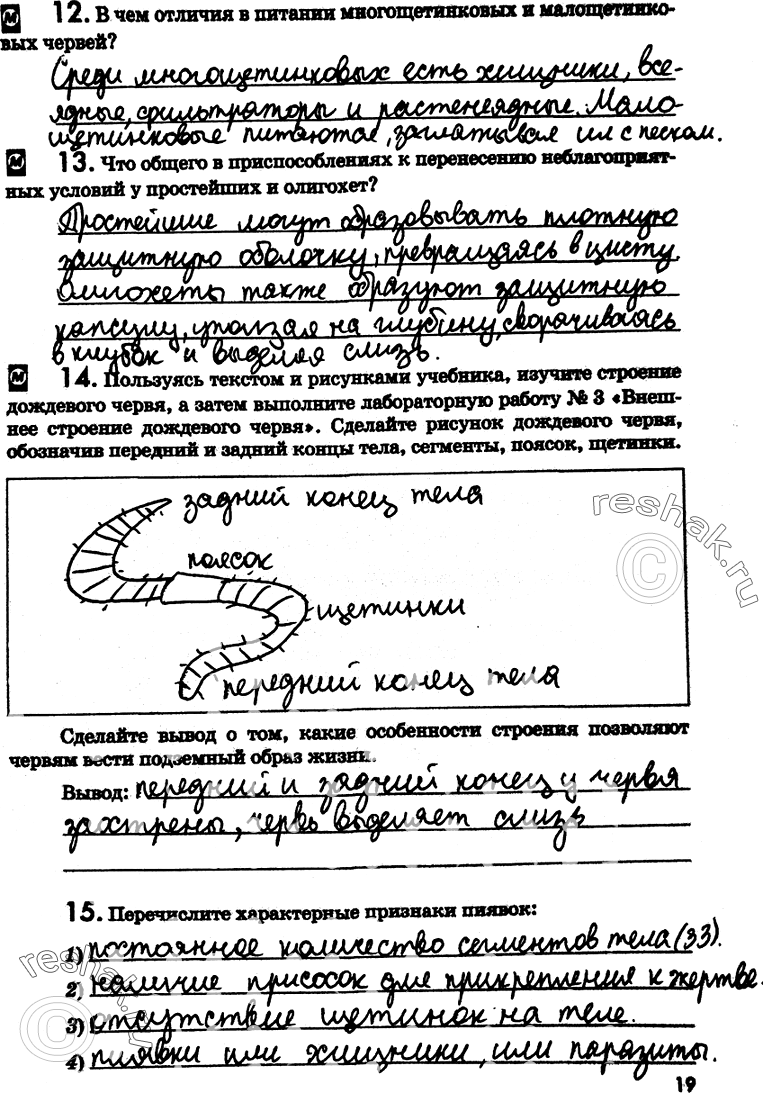 12. В чем отличия в питании многощетинковых и малощетинко-
вых червей?
Среди многощетинковых есть хищники, все-
ядные, фильтраторы и растенеядные. Мало-
щетинковые питаются, заглатывая ил с песком.
13. Что общего в приспособлениях к перенесению неблагоприят-
ных условий у простейших и олигохет?
Простейшие могут образовывать плотную
защитную оболочку, превращаясь в цисту.
Олигохеты также образуют защитную
капсулу, уползая на глубину, сворачиваясь
в клубок и выделяя слизь.
14. Пользуясь текстом и рисунками учебника, изучите строение
дождевого червя, а затем выполните лабораторную работу № 3 «Внеш-
нее строение дождевого червя». Сделайте рисунок дождевого червя,
обозначив передний и задний концы тела, сегменты, поясок, щетинки.
задний конец тела
reshak.ru
поясок
©
щетинки
передний конец тела
Сделайте вывод о том, какие особенности строения позволяют
червям вести подземный образ жизни.
Вывод: передний и задний конец у червя
заострены, червь выделяет слизь
15. Перечислите характерные признаки пиявок:
1) постоянное количество сегментов тела (33).
2) наличие присосок для прикрепления к жертве.
3) отсутствие щетинок на теле.
4) пиявки или хищники, или паразиты.
reshak.ru
©
19